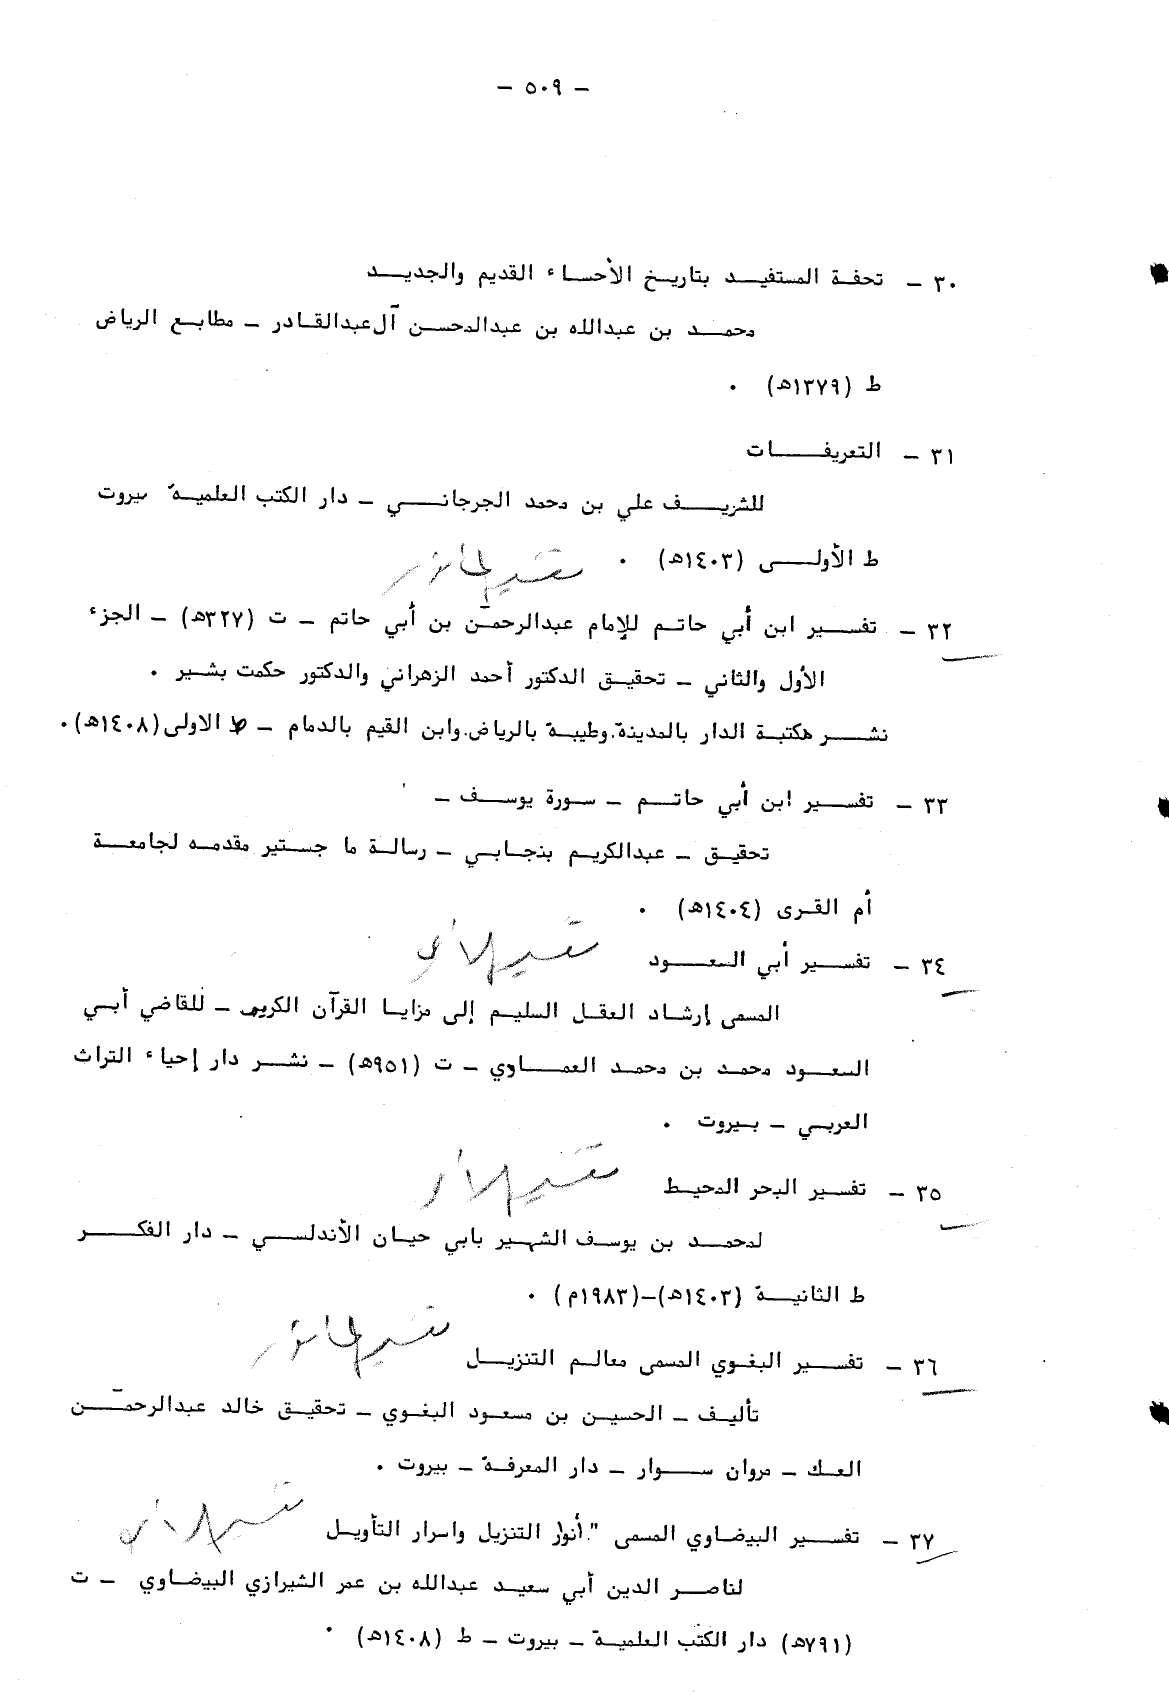 - ٥٠٩ -
٣٠ - تحفة المستفيد بتاريخ الأحساء القديم والجديد
محمد بن عبدالله بن عبدالمحسن آل عبدالقادر - مطابع الرياض
ط (١٣٧٩هـ) .
٣١ - التعريفات
للشريف علي بن محمد الجرجاني - دار الكتب العلمية بيروت
ط الأولى (١٤٠٣هـ) .
٣٢ - تفسير ابن أبي حاتم للإمام عبدالرحمن بن أبي حاتم - ت (٣٢٧هـ) - الجزء
الأول والثاني - تحقيق الدكتور أحمد الزهراني والدكتور حكمت بشير .
نشر مكتبة الدار بالمدينة. وطيبة بالرياض. وابن القيم بالدمام - ط الاولى (١٤٠٨هـ) .
٣٣ - تفسير ابن أبي حاتم - سورة يوسف -
تحقيق - عبدالكريم بنجابي - رسالة ما جستير مقدمه لجامعة
أم القرى (١٤٠٤هـ) .
٣٤ - تفسير أبي السعود
المسمى إرشاد العقل السليم إلى مزايا القرآن الكريم - للقاضي أبي
السعود محمد بن محمد العماوي - ت (٩٥١هـ) - نشر دار إحياء التراث
العربي - بيروت .
٣٥ - تفسير البحر المحيط
لمحمد بن يوسف الشهير بابي حيان الأندلسي - دار الفكر
ط الثانية (١٤٠٣هـ)-(١٩٨٣م) .
٣٦ - تفسير البغوي المسمى معالم التنزيل
تأليف - الحسين بن مسعود البغوي - تحقيق خالد عبدالرحمن
العك - مروان سوار - دار المعرفة - بيروت .
٣٧ - تفسير البيضاوي المسمى ". أنوار التنزيل واسرار التأويل
لناصر الدين أبي سعيد عبدالله بن عمر الشيرازي البيضاوي - ت
(٧٩١هـ) دار الكتب العلمية - بيروت - ط (١٤٠٨هـ) .